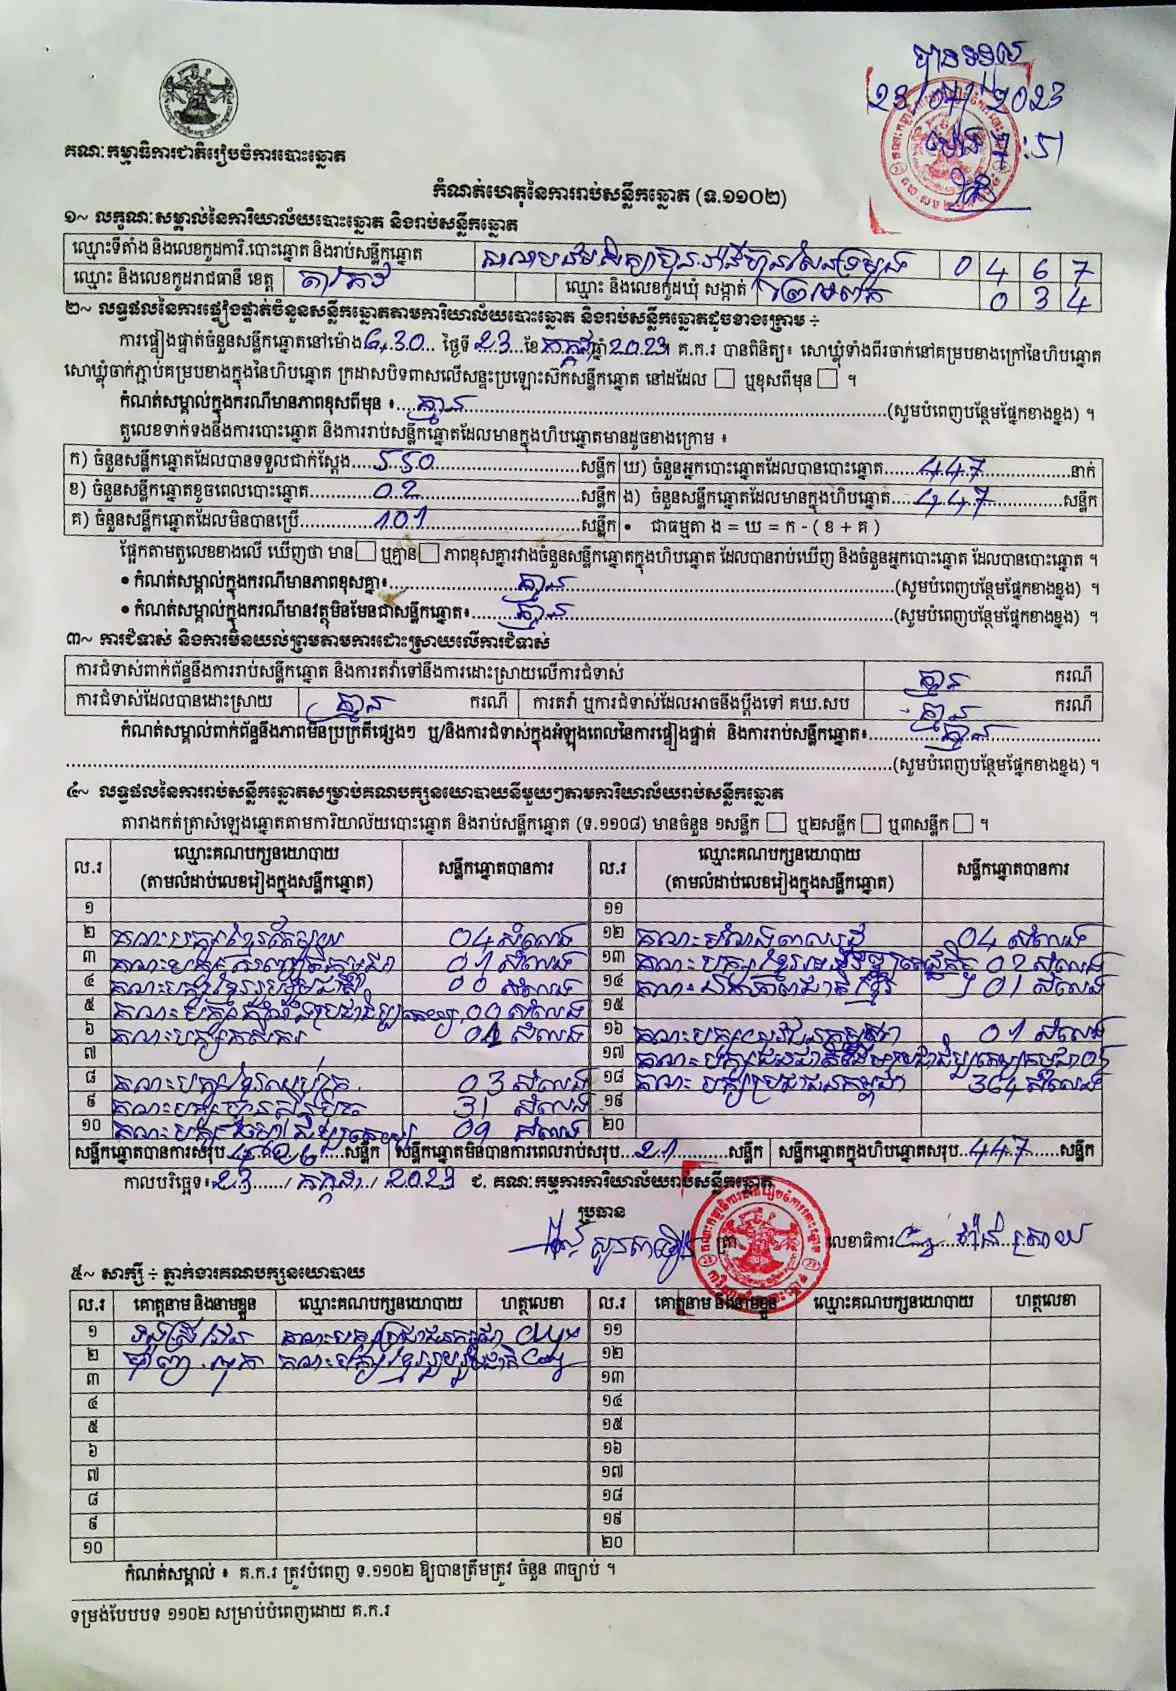 បានទទួល
23/07/2023
គណៈកម្មាធិការជាតិរៀបចំការបោះឆ្នោត
កំណត់ហេតុនៃការរាប់សន្លឹកឆ្នោត (ទ.១១០២)
១~ លក្ខណៈសម្គាល់នៃការិយាល័យបោះឆ្នោត និងរាប់សន្លឹកឆ្នោត
ឈ្មោះទីតាំង និងលេខកូដការិ.បោះឆ្នោត និងរាប់សន្លឹកឆ្នោត 0 4 6 7
ឈ្មោះ និងលេខកូដរាជធានី ខេត្ត តាកែវ ឈ្មោះ និងលេខកូដឃុំ សង្កាត់ 0 3 4
២~ លទ្ធផលនៃការផ្ទៀងផ្ទាត់ចំនួនសន្លឹកឆ្នោតតាមការិយាល័យបោះឆ្នោត និងរាប់សន្លឹកឆ្នោតដូចខាងក្រោម ÷
ការផ្ទៀងផ្ទាត់ចំនួនសន្លឹកឆ្នោតនៅម៉ោង 30 ថ្ងៃទី 23 ខែ កក្កដា ឆ្នាំ 2023 គ.ក.រ បានពិនិត្យ៖ សោឃ្លុំទាំងពីរចាក់នៅគម្របខាងក្រៅនៃហិបឆ្នោត
សោឃ្លុំចាក់ភ្ជាប់គម្របខាងក្នុងនៃហិបឆ្នោត ក្រដាសបិទពាសលើសន្ទះប្រឡោះស៊កសន្លឹកឆ្នោត នៅដដែល □ ឬខុសពីមុន □ ។
កំណត់សម្គាល់ក្នុងករណីមានភាពខុសពីមុន ៖ គ្មាន (សូមបំពេញបន្ថែមផ្នែកខាងខ្នង) ។
តួលេខទាក់ទងនឹងការបោះឆ្នោត និងការរាប់សន្លឹកឆ្នោតដែលមានក្នុងហិបឆ្នោតមានដូចខាងក្រោម ៖
ក) ចំនួនសន្លឹកឆ្នោតដែលបានទទួលជាក់ស្តែង 550 សន្លឹក ឃ) ចំនួនអ្នកបោះឆ្នោតដែលបានបោះឆ្នោត 447 នាក់
ខ) ចំនួនសន្លឹកឆ្នោតខូចពេលបោះឆ្នោត 02 សន្លឹក ង) ចំនួនសន្លឹកឆ្នោតដែលមានក្នុងហិបឆ្នោត 447 សន្លឹក
គ) ចំនួនសន្លឹកឆ្នោតដែលមិនបានប្រើ 101 សន្លឹក • ជាធម្មតា ង = ឃ = ក - ( ខ + គ )
ផ្អែកតាមតួលេខខាងលើ ឃើញថា មាន □ ឬគ្មាន □ ភាពខុសគ្នារវាងចំនួនសន្លឹកឆ្នោតក្នុងហិបឆ្នោត ដែលបានរាប់ឃើញ និងចំនួនអ្នកបោះឆ្នោត ដែលបានបោះឆ្នោត ។
• កំណត់សម្គាល់ក្នុងករណីមានភាពខុសគ្នា៖ គ្មាន (សូមបំពេញបន្ថែមផ្នែកខាងខ្នង) ។
• កំណត់សម្គាល់ក្នុងករណីមានវត្ថុមិនមែនជាសន្លឹកឆ្នោត៖ គ្មាន (សូមបំពេញបន្ថែមផ្នែកខាងខ្នង) ។
៣~ ការជំទាស់ និងការមិនយល់ព្រមតាមការដោះស្រាយលើការជំទាស់
ការជំទាស់ពាក់ព័ន្ធនឹងការរាប់សន្លឹកឆ្នោត និងការតវ៉ាទៅនឹងការដោះស្រាយលើការជំទាស់ គ្មាន ករណី
ការជំទាស់ដែលបានដោះស្រាយ គ្មាន ករណី ការតវ៉ា ឬការជំទាស់ដែលអាចនឹងប្តឹងទៅ គឃ.សប គ្មាន ករណី
កំណត់សម្គាល់ពាក់ព័ន្ធនឹងភាពមិនប្រក្រតីផ្សេងៗ ឬ/និងការជំទាស់ក្នុងអំឡុងពេលនៃការផ្ទៀងផ្ទាត់ និងការរាប់សន្លឹកឆ្នោត៖ គ្មាន
(សូមបំពេញបន្ថែមផ្នែកខាងខ្នង) ។
៤~ លទ្ធផលនៃការរាប់សន្លឹកឆ្នោតសម្រាប់គណបក្សនយោបាយនីមួយៗតាមការិយាល័យរាប់សន្លឹកឆ្នោត
តារាងកត់ត្រាសំឡេងឆ្នោតតាមការិយាល័យបោះឆ្នោត និងរាប់សន្លឹកឆ្នោត (ទ.១១០៨) មានចំនួន ១សន្លឹក □ ឬ២សន្លឹក □ ឬ៣សន្លឹក □ ។
ល.រ ឈ្មោះគណបក្សនយោបាយ (តាមលំដាប់លេខរៀងក្នុងសន្លឹកឆ្នោត) សន្លឹកឆ្នោតបានការ ល.រ ឈ្មោះគណបក្សនយោបាយ (តាមលំដាប់លេខរៀងក្នុងសន្លឹកឆ្នោត) សន្លឹកឆ្នោតបានការ
១ ១១
២ គណៈបក្ស 04 សំលេង ១២ គណៈ 04 សំលេង
៣ គណៈបក្ស 01 សំលេង ១៣ គណៈបក្ស 02 សំលេង
៤ គណៈបក្ស 00 សំលេង ១៤ គណៈ 01 សំលេង
៥ គណៈបក្ស 00 សំលេង ១៥
៦ គណៈបក្សកសិករ សំលេង ១៦ គណៈបក្ស 01 សំលេង
៧ ១៧ គណៈបក្ស
៨ គណៈបក្ស 03 សំលេង ១៨ គណៈបក្សប្រជាជនកម្ពុជា 364 សំលេង
៩ គណៈបក្សហ្វ៊ុនស៊ិនប៉ិច 31 សំលេង ១៩
១០ គណៈបក្ស សំលេង ២០
សន្លឹកឆ្នោតបានការសរុប សន្លឹក សន្លឹកឆ្នោតមិនបានការពេលរាប់សរុប 21 សន្លឹក សន្លឹកឆ្នោតក្នុងហិបឆ្នោតសរុប 447 សន្លឹក
កាលបរិច្ឆេទ៖ 23 / កក្កដា / 2023 ជ. គណៈកម្មការការិយាល័យរាប់សន្លឹកឆ្នោត
ប្រធាន
ត្រា លេខាធិការ
៥~ សាក្សី ÷ ភ្នាក់ងារគណបក្សនយោបាយ
ល.រ គោត្តនាម និងនាមខ្លួន ឈ្មោះគណបក្សនយោបាយ ហត្ថលេខា ល.រ គោត្តនាម និងនាមខ្លួន ឈ្មោះគណបក្សនយោបាយ ហត្ថលេខា
១ គណៈបក្សប្រជាជនកម្ពុជា ១១
២ គណៈបក្ស ១២
៣ ១៣
៤ ១៤
៥ ១៥
៦ ១៦
៧ ១៧
៨ ១៨
៩ ១៩
១០ ២០
កំណត់សម្គាល់ ៖ គ.ក.រ ត្រូវបំពេញ ទ.១១០២ ឱ្យបានត្រឹមត្រូវ ចំនួន ៣ច្បាប់ ។
ទម្រង់បែបបទ ១១០២ សម្រាប់បំពេញដោយ គ.ក.រ